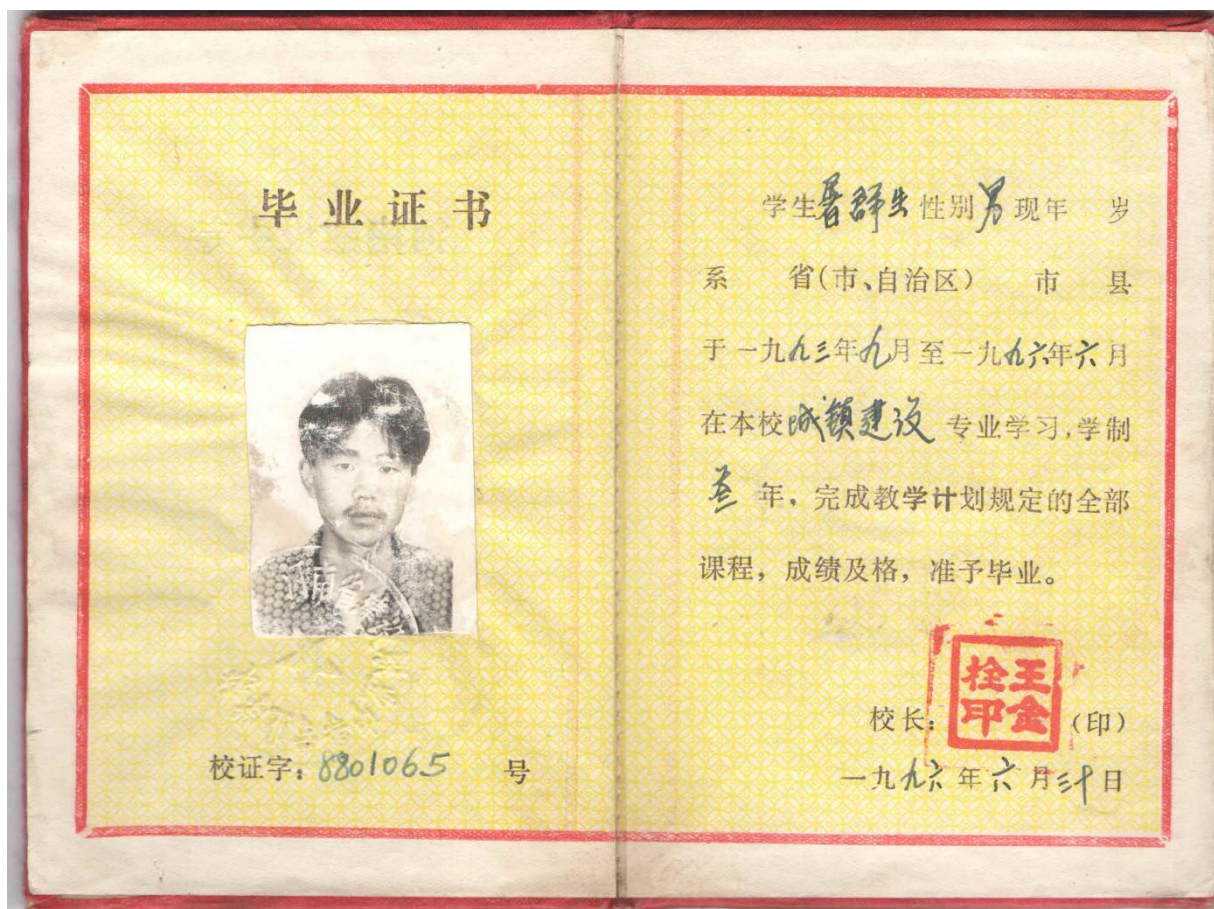 毕业证书
校证字：8801065 号
学生 群生 性别男现年 岁
系 省(市、自治区) 市 县
于一九九三年九月至一九九六年六月
在本校城镇建设 专业学习，学制
叁 年，完成教学计划规定的全部
课程，成绩及格，准予毕业。
校长：王金栓印 (印)
一九九六年六月三十日